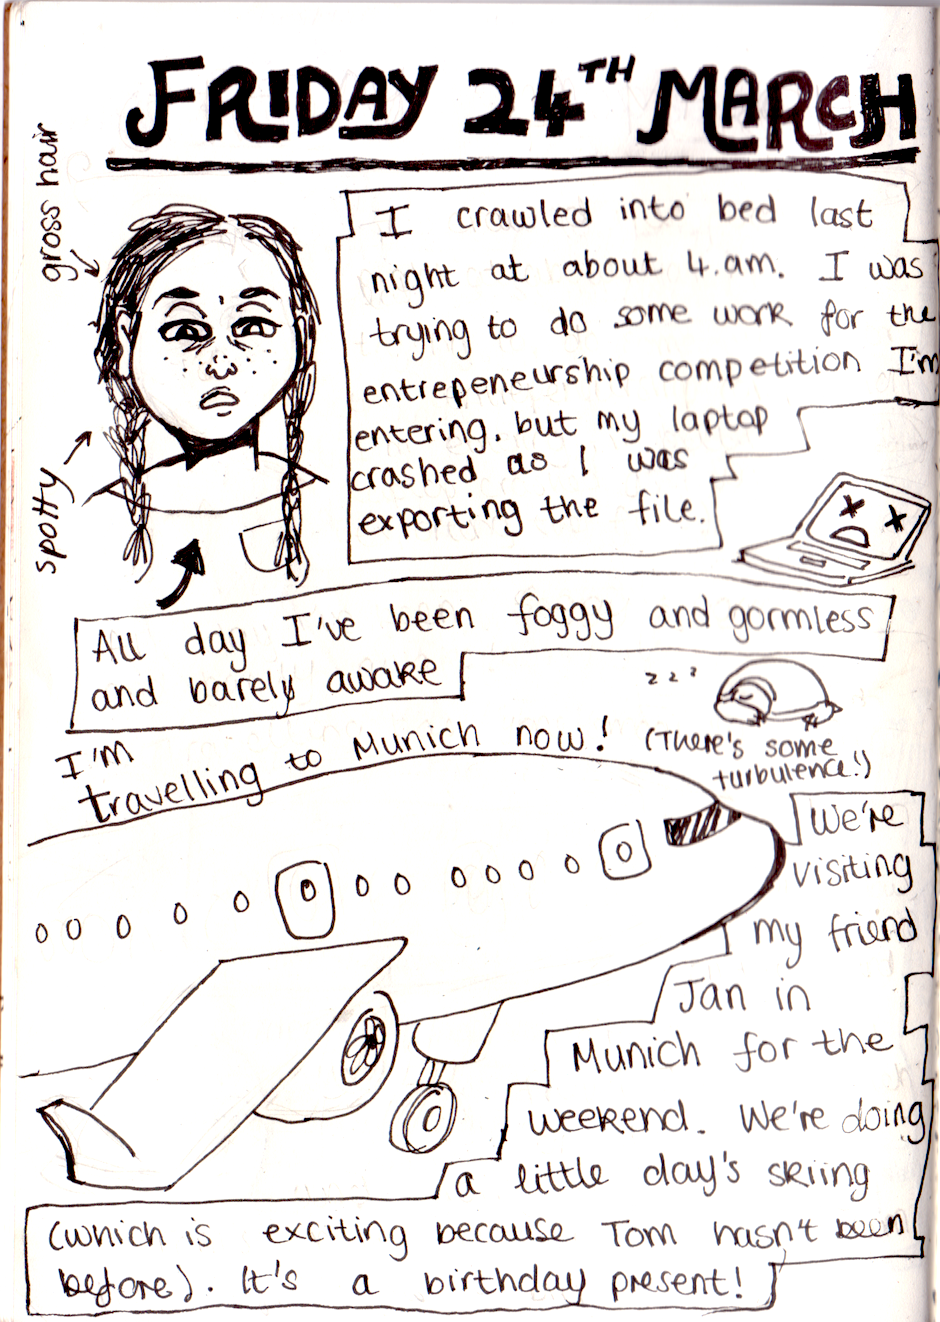 FRIDAY 24TH MARCH
gross hair
spotty
I crawled into bed last
night at about 4.am. I was
trying to do some work for the
entrepeneurship competition I'm
entering, but my laptop
crashed as I was
exporting the file.
All day I've been foggy and gormless
and barely awake
z z z
I'm
travelling to Munich now! (There's some
turbulence!)
We're
visiting
my friend
Jan in
Munich for the
weekend. We're doing
a little day's skiing
(which is exciting because Tom hasn't been
before). It's a birthday present!